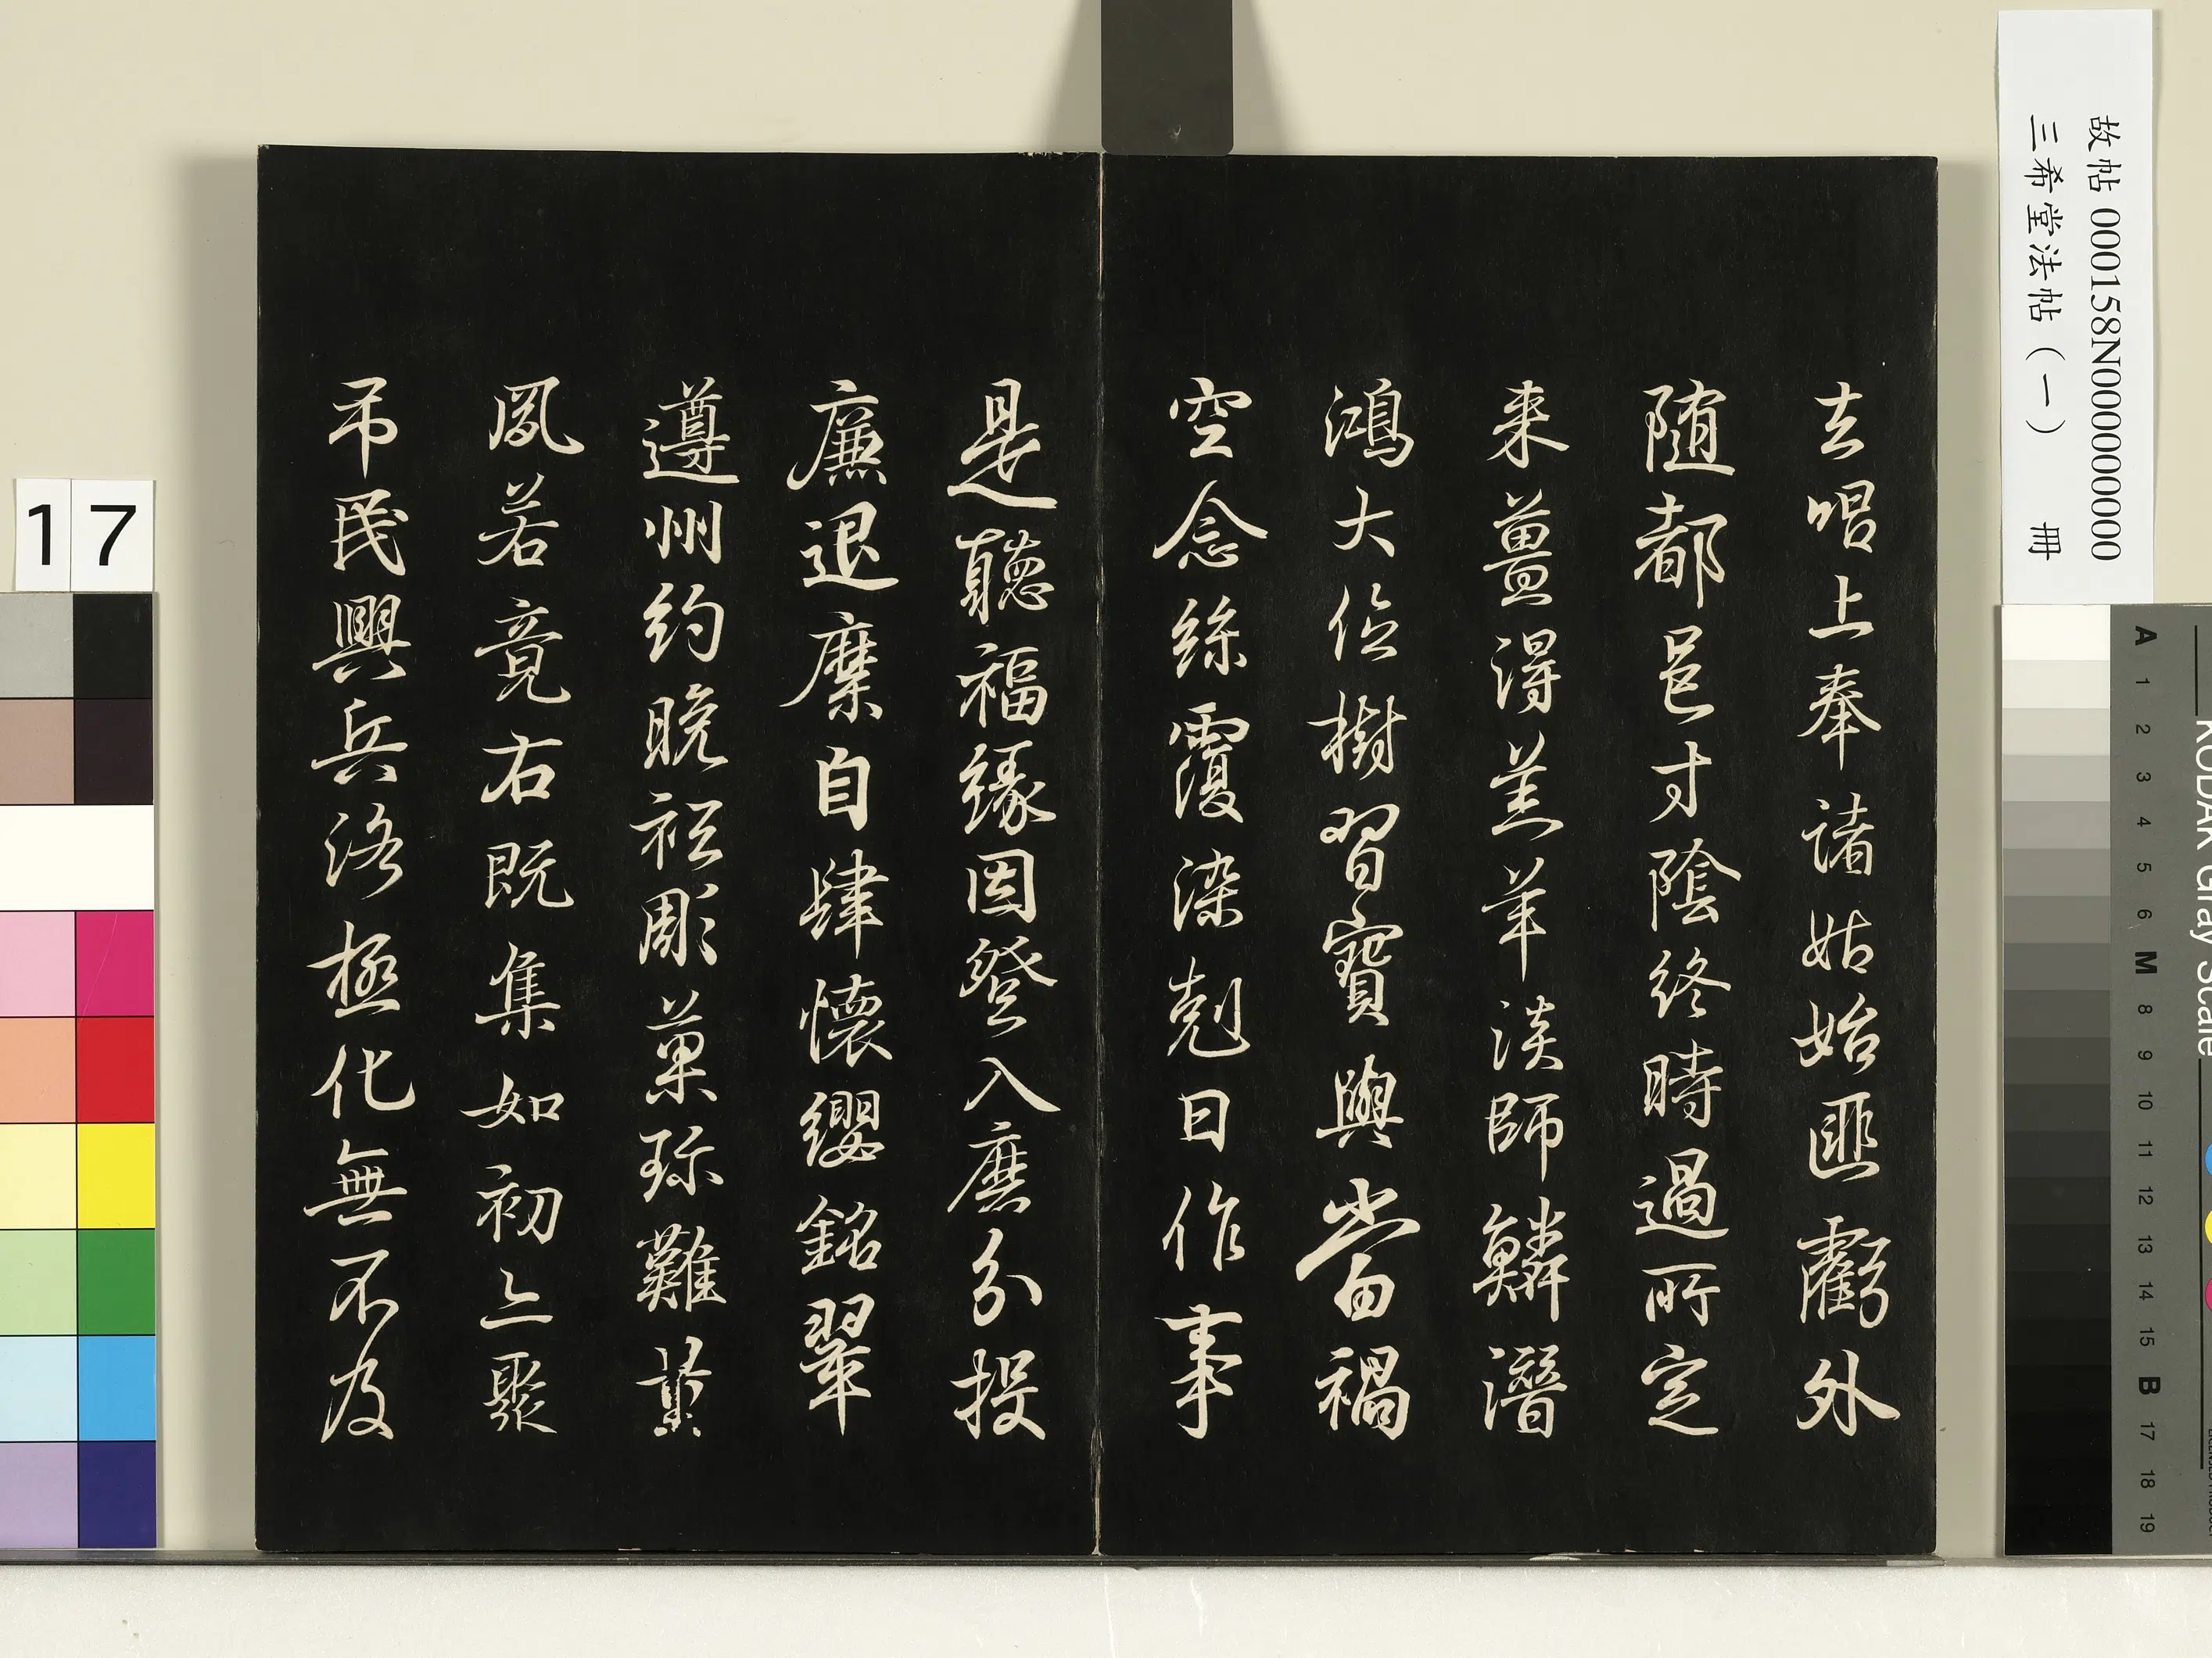 去唱上奉諸姑始匪虧外
随都邑寸陰終時過所定
来薑得羔羊淡師鱗潛
鴻大位樹習寶與當禍
空念絲覆染剋日作事
是聽福緣因登入庶分投
廉退縻自肆懷纓銘翠
遵州約晚社彫菓珍難黃
夙若竟右既集如初亦聚
吊民興兵洛極化無不及
故帖 000158N000000000
三希堂法帖（一） 冊
17
KODAK Gray Scale
A 1 2 3 4 5 6 M 8 9 10 11 12 13 14 15 B 17 18 19